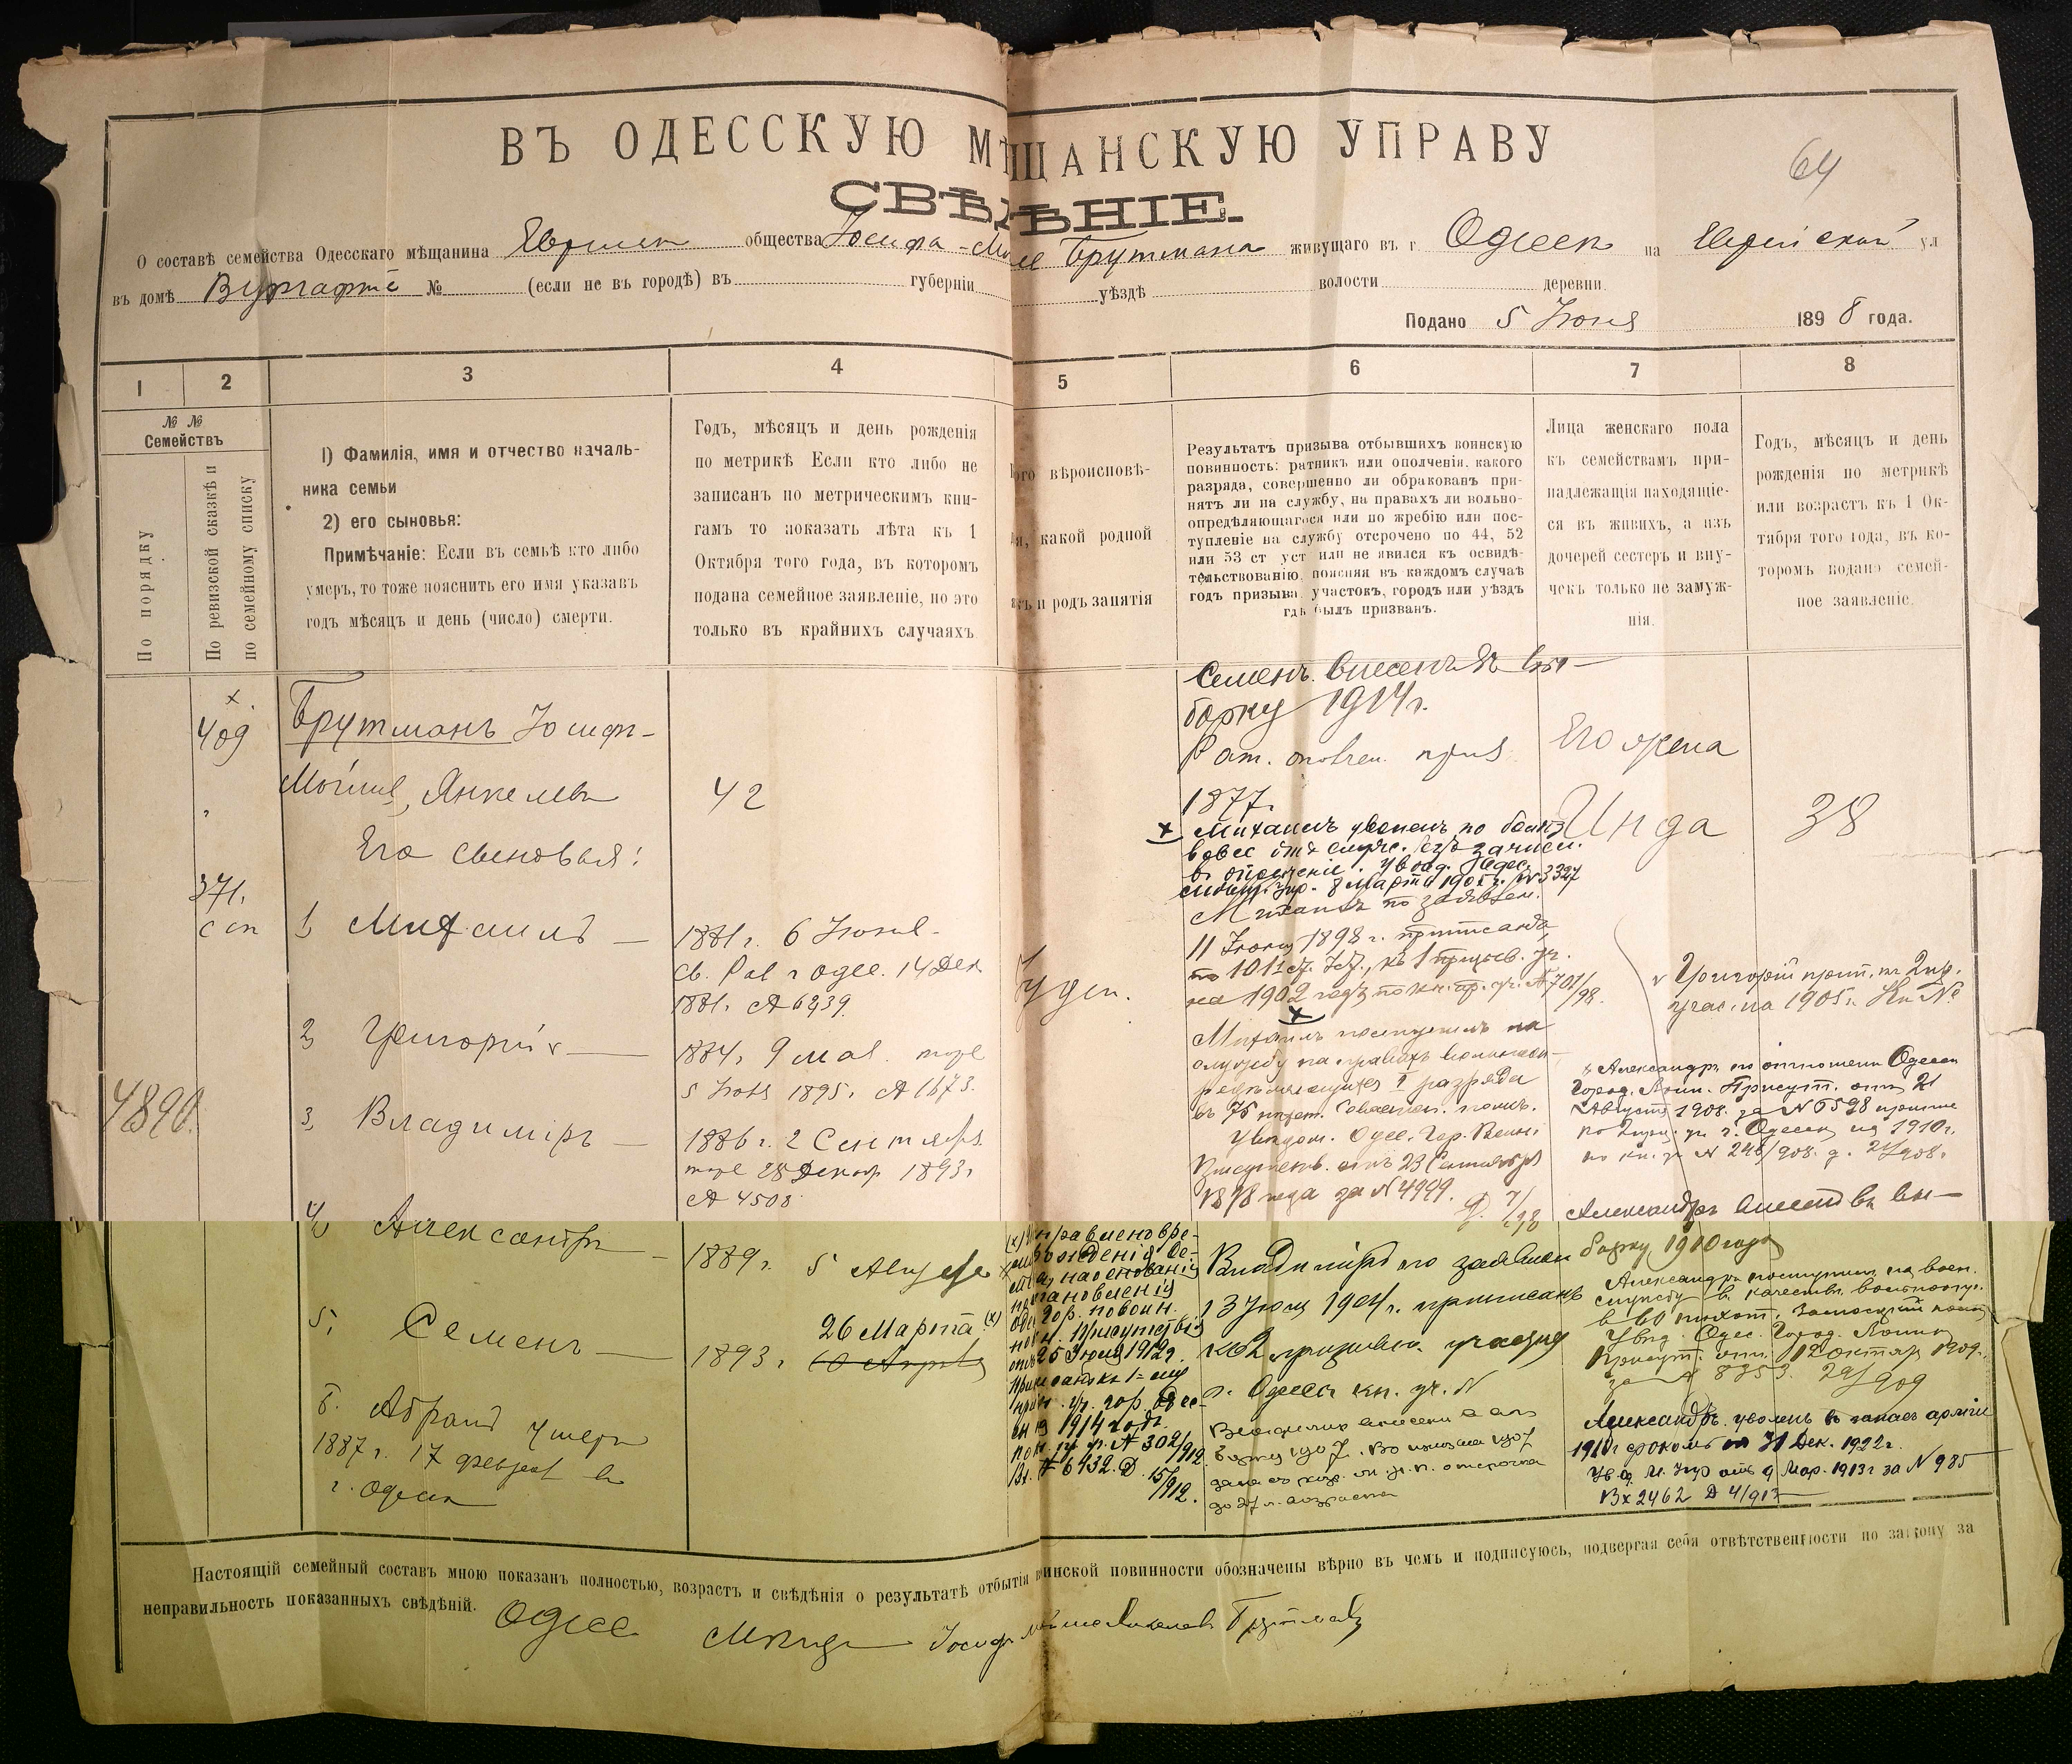 ВЪ ОДЕССКУЮ МѢЩАНСКУЮ УПРАВУ
64
СВѢДѢНІЕ.
О составѣ семейства Одесскаго мѣщанина общества Іосифа-Мой Брутмана живущаго въ г Одессѣ на Еврейской ул
въ домѣ № (если не въ городѣ) въ губерніи уѣздѣ волости деревни
Подано 5 Іюня 1898 года.
1 2 3 4 5 6 7 8
№ №
Семействъ
По порядку
По ревизской сказкѣ и
по семейному списку
1) Фамилія, имя и отчество началь-
ника семьи
2) его сыновья:
Примѣчаніе: Если въ семьѣ кто либо
умеръ, то тоже пояснить его имя указавъ
годъ мѣсяцъ и день (число) смерти.
Годъ, мѣсяцъ и день рожденія
по метрикѣ Если кто либо не
записанъ по метрическимъ кни-
гамъ то показать лѣта къ 1
Октября того года, въ которомъ
подана семейное заявленіе, но это
только въ крайнихъ случаяхъ
вѣроисповѣ-
какой родной
и родъ занятія
Результатъ призыва отбывшихъ воинскую
повинность: ратникъ или ополченія, какого
разряда, совершенно ли обракованъ при-
нятъ ли на службу, на правахъ ли вольно-
опредѣляющагося или по жребію или пос-
тупленіе на службу отсрочено по 44, 52
или 53 ст уст или не явился къ освидѣ-
тельствованію, поясняя въ каждомъ случаѣ
годъ призыва, участокъ, городъ или уѣздъ
гдѣ былъ призванъ.
Лица женскаго пола
къ семействамъ при-
надлежащія находящіе-
ся въ живихъ, а изъ
дочерей сестеръ и вну-
чекъ только не замуж-
нія.
Годъ, мѣсяцъ и день
рожденія по метрикѣ
или возрастъ къ 1 Ок-
тября того года, въ ко-
торомъ подано семей-
ное заявленіе.
409
Брутманъ Іосифъ-
Мойше, Янкелевъ
42
Его сыновья:
371.
сп
1, Михаилъ
1881 г. 6 Іюня
14 Дек
1881. № 6239.
2, Григорій
1884, 9 мая
5 Іюня 1895, № 1673.
4890.
3, Владиміръ
1886 г. 2 Сентября
28 Декабр 1893г
№ 4508
4, Александръ
1889 г. 5 Августа
5, Семенъ
1893 г. 26 Марта (х)
6. Абрамъ умеръ
1887 г. 17 февраля въ
г. Одессѣ
Іудей.
(х) Исправлено вре-
мя рожденія Се-
мена, на основаніи
постановленія
Одес. Гор. по воин.
пов. Присутствія
отъ 25 Іюля 1912 г.
Приписанъ къ 1-му
приз. уч. гор. Одес-
сы на 1914 годъ
по кн. пр. уч. № 302/912.
Вх. № 6432. Д. 15/912.
Семенъ внесенъ въ вы-
борку 1914 г.
Рат. ополчен. приз
1877г.
х Михаилъ уволенъ по болѣз
вовсе отъ служ. безъ зачисл.
въ ополченіе. Увѣд. Одес.
8 Марта № 3327
Михаилъ по заявлен.
11 Іюня 1898 г. приписанъ
къ 1 призыв. уч.
на 1902 годъ по кн. пр. уч. № 701/98.
х
Михаилъ поступилъ на
службу на правахъ вольноопре-
дѣляющагося I разряда
въ 75 пѣхот. Севастоп. полкъ.
Увѣдом. Одес. Гор. Воин.
Присутств. отъ 23 Сентября
1898 года за № 4999.
Владиміръ по заявлен
13 Іюля 1904 г. приписанъ
ко 2 призывн. участку
г. Одессы кн. уч. №
Владиміръ внесенъ въ вы-
борку 1907.
до 27 л. возраста
Его жена
Инда
38
Григорій прип. къ 2 пр.
учас. на 1905 г. Кн №
Александръ по отношенію Одесск
Город. Воин. Присут. отъ 21
Августа 1908. за № 6598 припис
по 2 приз. уч. г. Одессы на 1910 г.
по кн. уч № 246/908. д. 24/908.
Александръ внесенъ въ вы-
борку 1910 года
Александръ поступилъ на воен.
службу въ качествѣ вольноопр.
въ 60 пѣхот. Замосцкій полкъ
Увѣд. Одес. Город. Воин.
Присут. отъ 12 Октяр 1909.
за № 8353. 29/909
Александръ уволенъ въ запасъ арміи
1910 г срокомъ по 31 Дек. 1922 г.
Ув. Од. М. Упр отъ 9 Мар. 1913 г за № 985
Вх 2462 Д 4/913
Настоящій семейный составъ мною показанъ полностью, возрастъ и свѣдѣнія о результатѣ отбытія воинской повинности обозначены вѣрно въ чемъ и подписуюсь, подвергая себя отвѣтственности по закону за
неправильность показанныхъ свѣдѣній.
Одес Мѣщ Іосифъ Мойше Янкелевъ Брутманъ